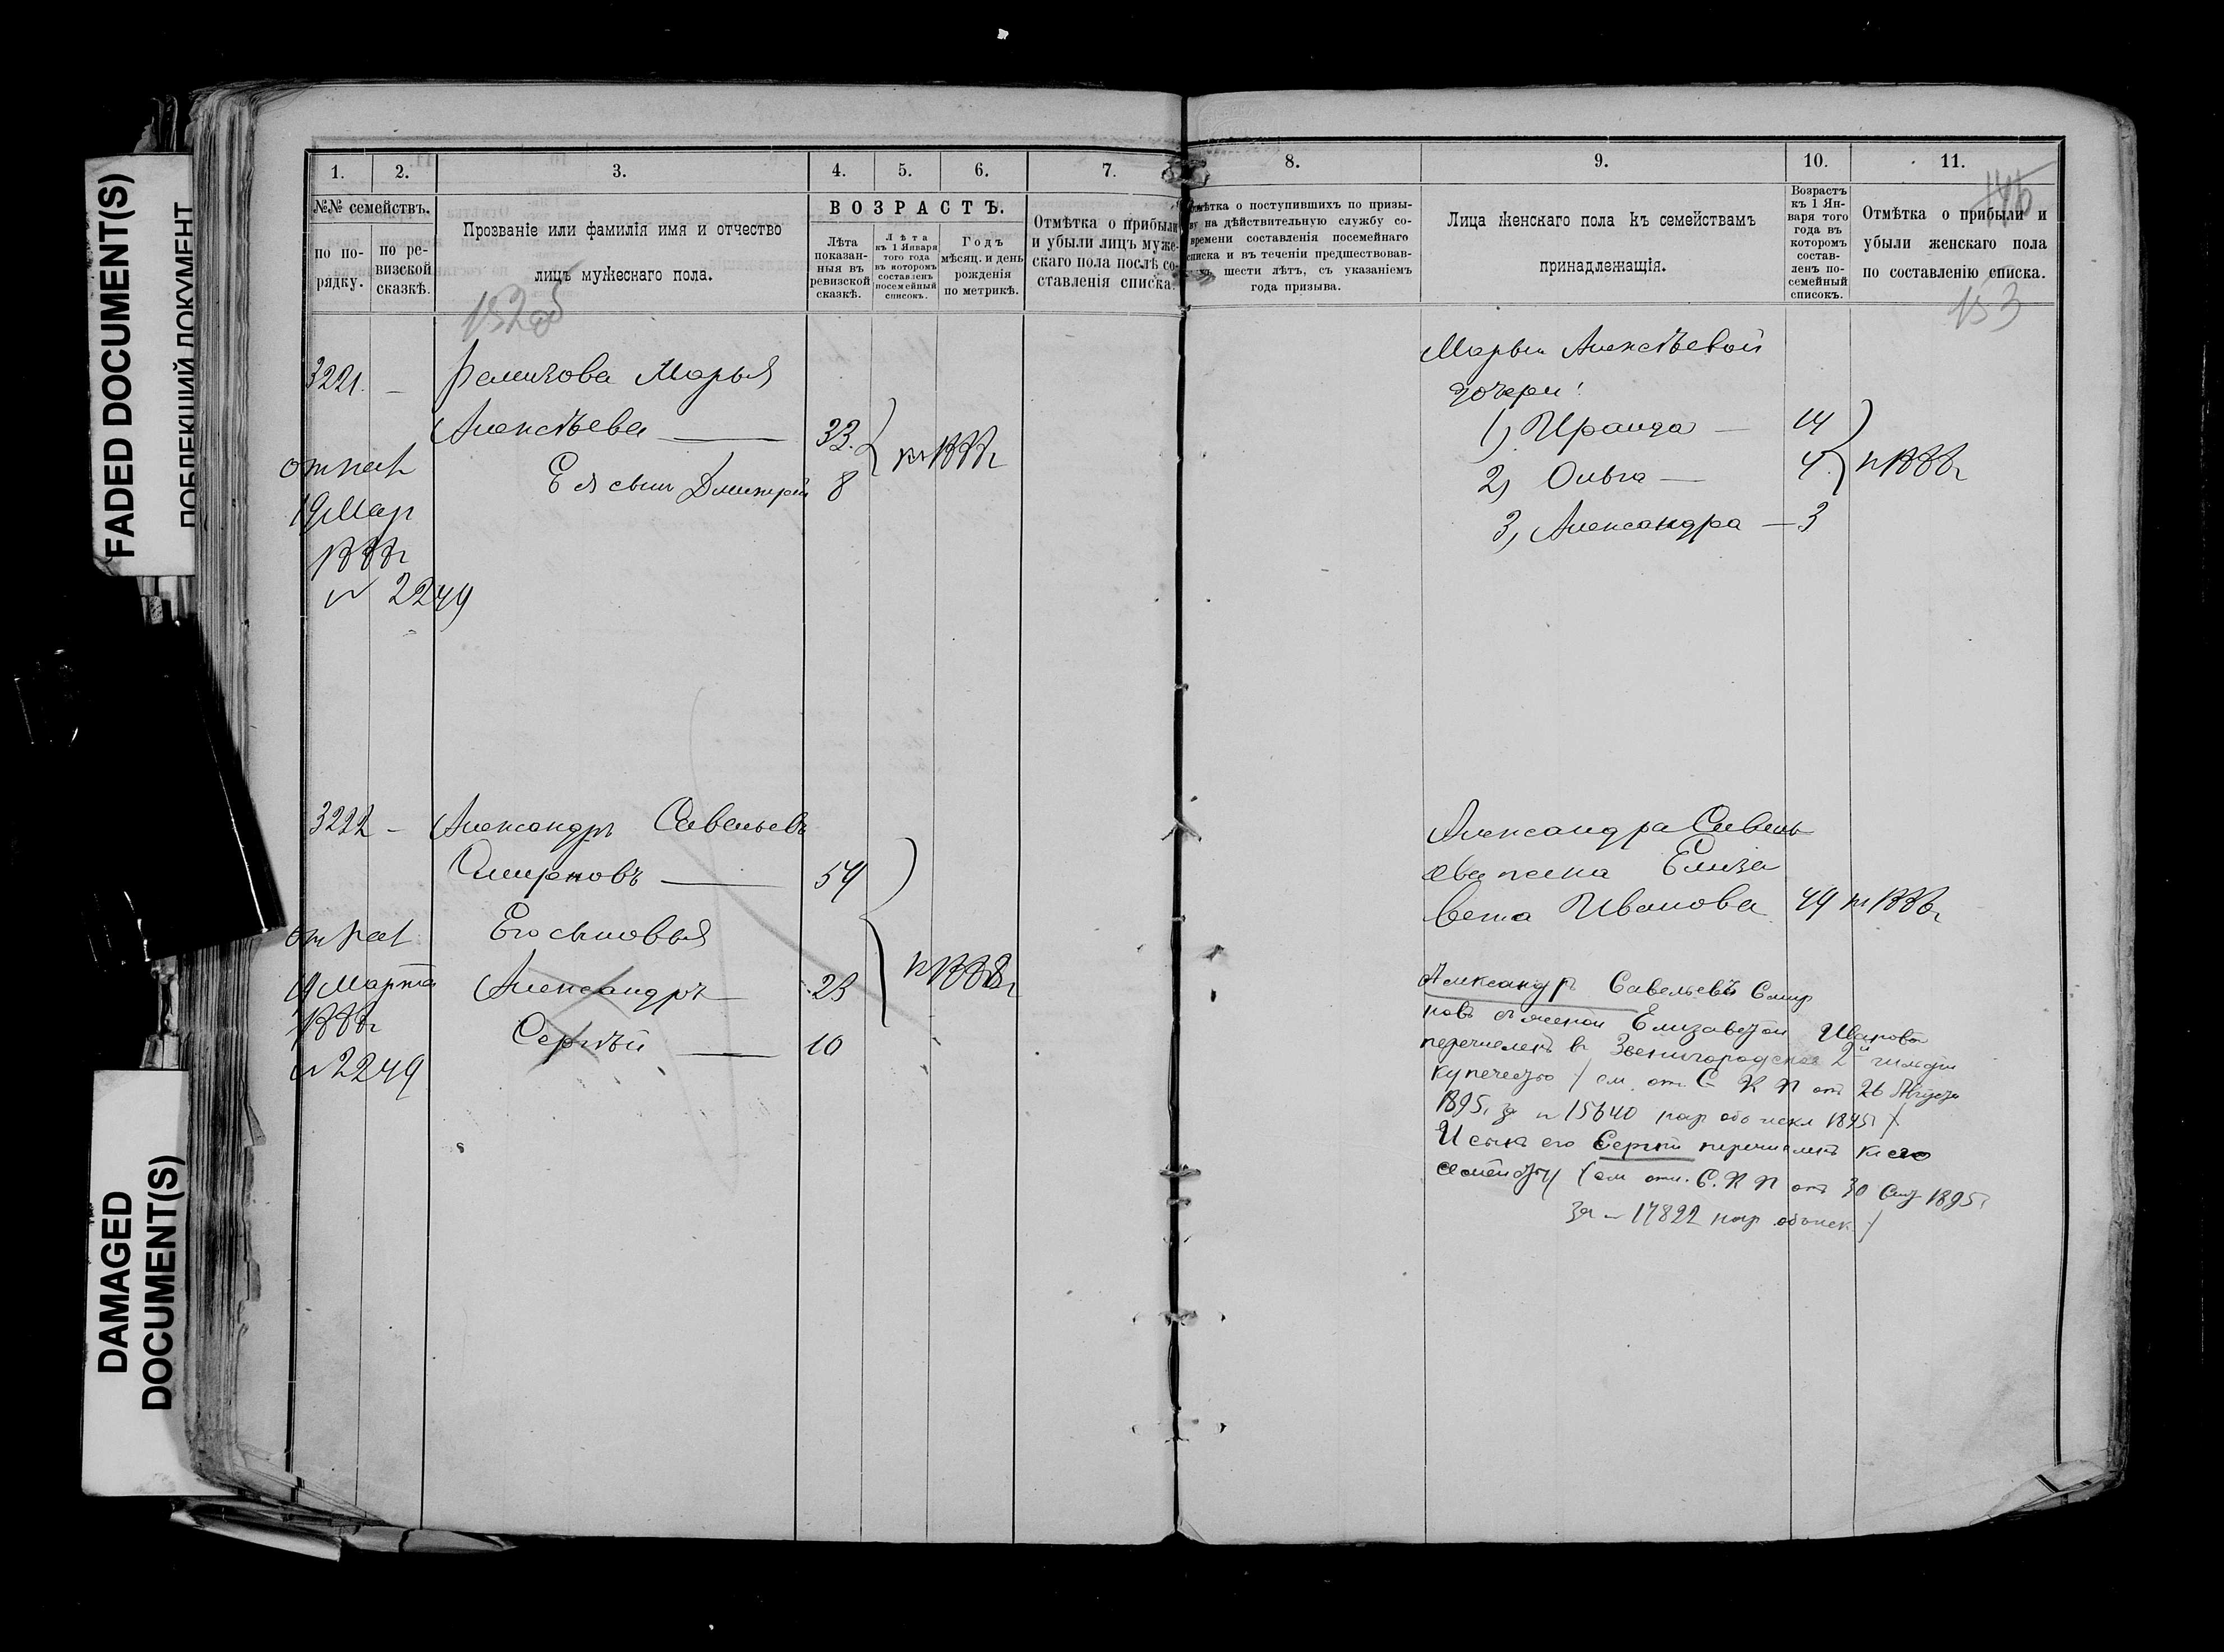 FADED DOCUMENT(S)
DAMAGED
DOCUMENT(S)
1. 2. 3. 4. 5. 6. 7.
№№ семействъ.
по по-
рядку.
по ре-
визской
сказкѣ.
Прозваніе или фамилія имя и отчество
лицъ мужескаго пола.
ВОЗРАСТЪ.
Лѣта
показан-
ныя въ
ревизской
сказкѣ.
Лѣта
къ 1 Января
того года
въ которомъ
составленъ
посемейный
списокъ.
Годъ
мѣсяц. и день
рожденія
по метрикѣ.
Отмѣтка о прибыли
и убыли лицъ муже-
скаго пола послѣ со-
ставленія списка.
152об
3221. —
Марья
Алексѣева — 33.
Ея сынъ Дмитрій 8
къ 1888г
19 Мар
1888г
№ 2249
3222 — Александръ Савельевъ
Смирновъ — 54
Его сыновья
Александръ — 23
Сергѣй — 10
къ 1888г
19 Марта
1888г
№ 2249
8. 9. 10. 11.
Отмѣтка о поступившихъ по призы-
ву на дѣйствительную службу со-
времени составленія посемейнаго
списка и въ теченіи предшествовав-
шести лѣтъ, съ указаніемъ
года призыва.
Лица женскаго пола къ семействамъ
принадлежащія.
Возрастъ
къ 1 Ян-
варя того
года въ
которомъ
состав-
ленъ по-
семейный
списокъ.
Отмѣтка о прибыли и
убыли женскаго пола
по составленію списка.
153
Марьи Алексѣевой
дочери:
1) Ираида — 14
2) Ольга — 4
3) Александра — 3
къ 1888г
Александра Савель
ева жена Елиза
вета Иванова 49 къ 1888г
Александръ Савельевъ Смир
новъ съ женой Елизаветой Иванова
перечисленъ въ Звенигородское 2й гильдіи
купечество / см. отн. С К П отъ 26 Августа
1895г за № 15640
И сынъ его Сергѣй перечисленъ къ его
семейству / см отн. С. К П отъ 30 Сент 1895г
за № 17822